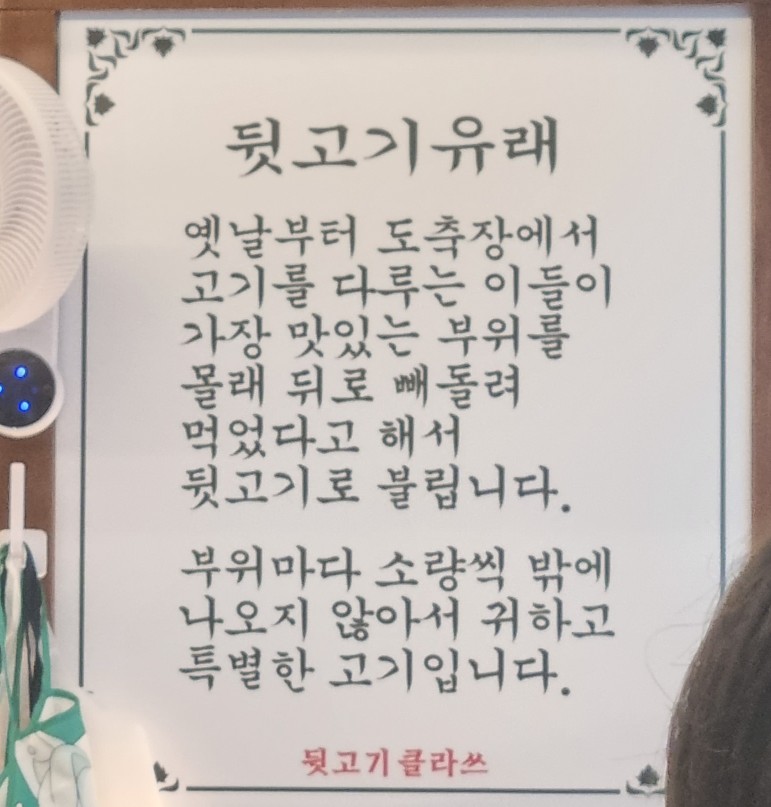 뒷고기유래
옛날부터 도축장에서
고기를 다루는 이들이
가장 맛있는 부위를
몰래 뒤로 빼돌려
먹었다고 해서
뒷고기로 불립니다.
부위마다 소량씩 밖에
나오지 않아서 귀하고
특별한 고기입니다.
뒷고기클라쓰